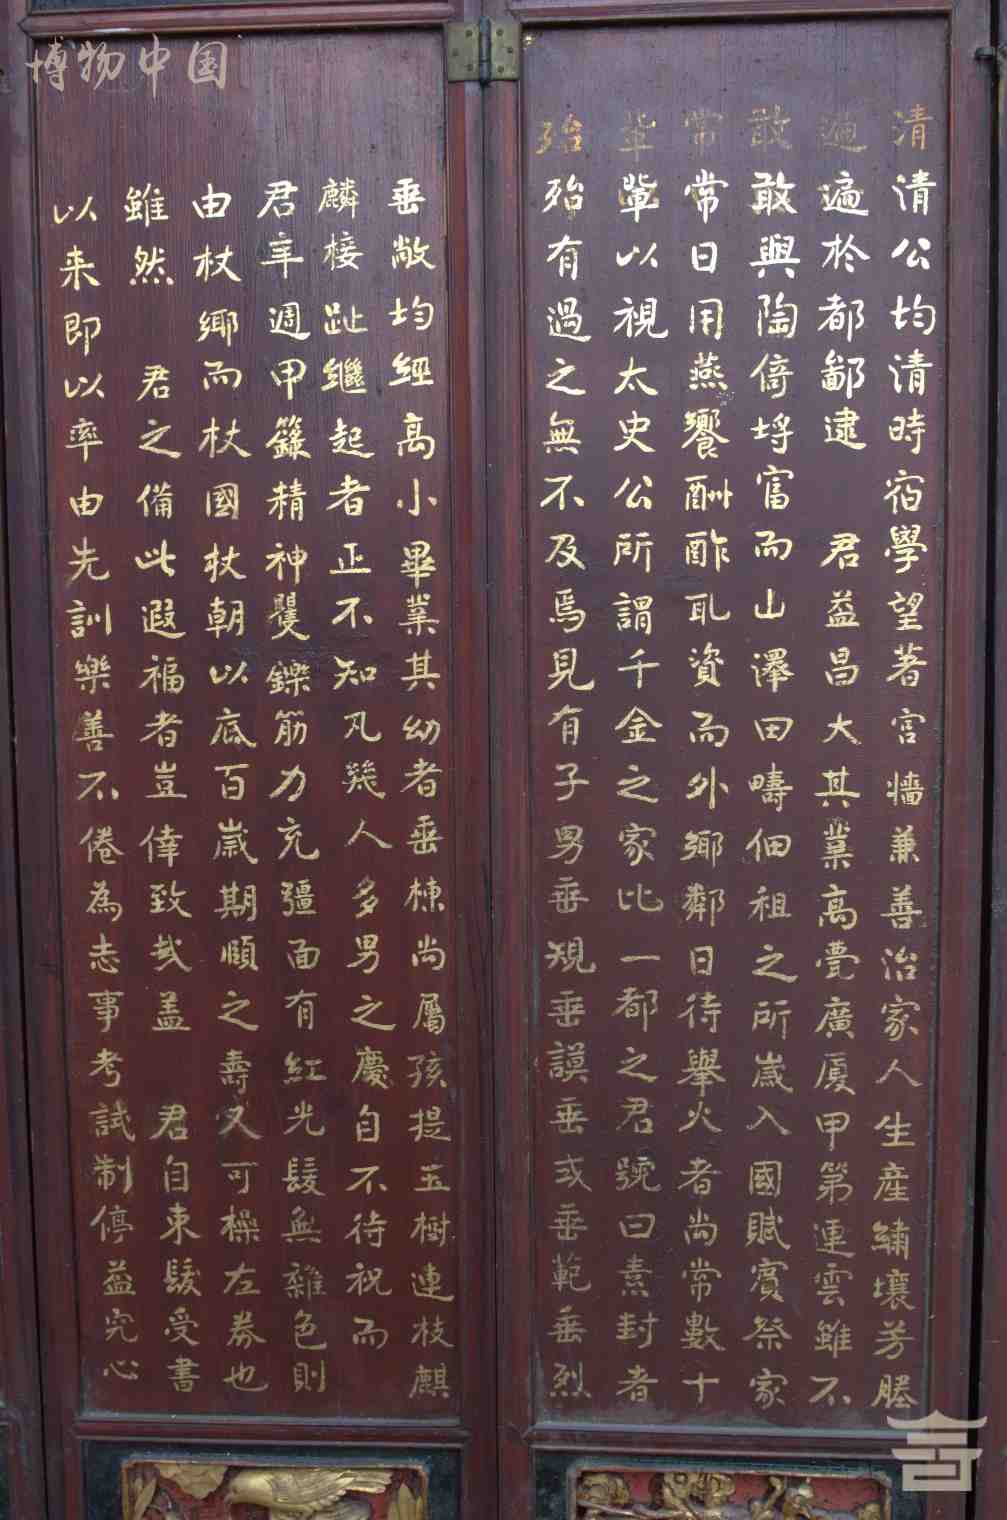 博物中国
清清公均清時宿學望著宫牆兼善治家人生產繡壤芳塍
遍遍於都鄙逮 君益昌大其業高甍廣厦甲第連雲雖不
敢敢與陶倚埒富而山澤田疇佃租之所歲入國賦賓祭家
常常日用燕饗酬酢瓦資而外鄉鄰日待舉火者尚常數十
軰軰以視太史公所謂千金之家比一都之君號曰素封者
殆殆有過之無不及焉見有子男垂規垂謨垂或垂範垂烈
垂敞均經高小畢業其幼者垂棟尚屬孩提玉樹連枝麒
麟接趾繼起者正不知凡幾人多男之慶自不待祝而
君年週甲籙精神矍鑠筋力充彊面有紅光髮無雜色則
由杖鄉而杖國杖朝以底百歲期頤之壽又可操左券也
雖然 君之備此遐福者豈倖致哉盖 君自束髮受書
以来即以率由先訓樂善不倦為志事考試制停益究心